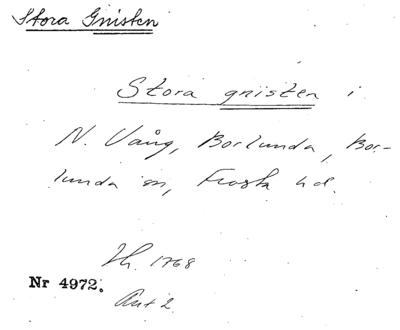 Stora Gnisten
Stora gnisten i
N. Vång, Borlunda, Bor-
lunda sn, Frosta hd.
1768
Nr 4972.
Akt 2